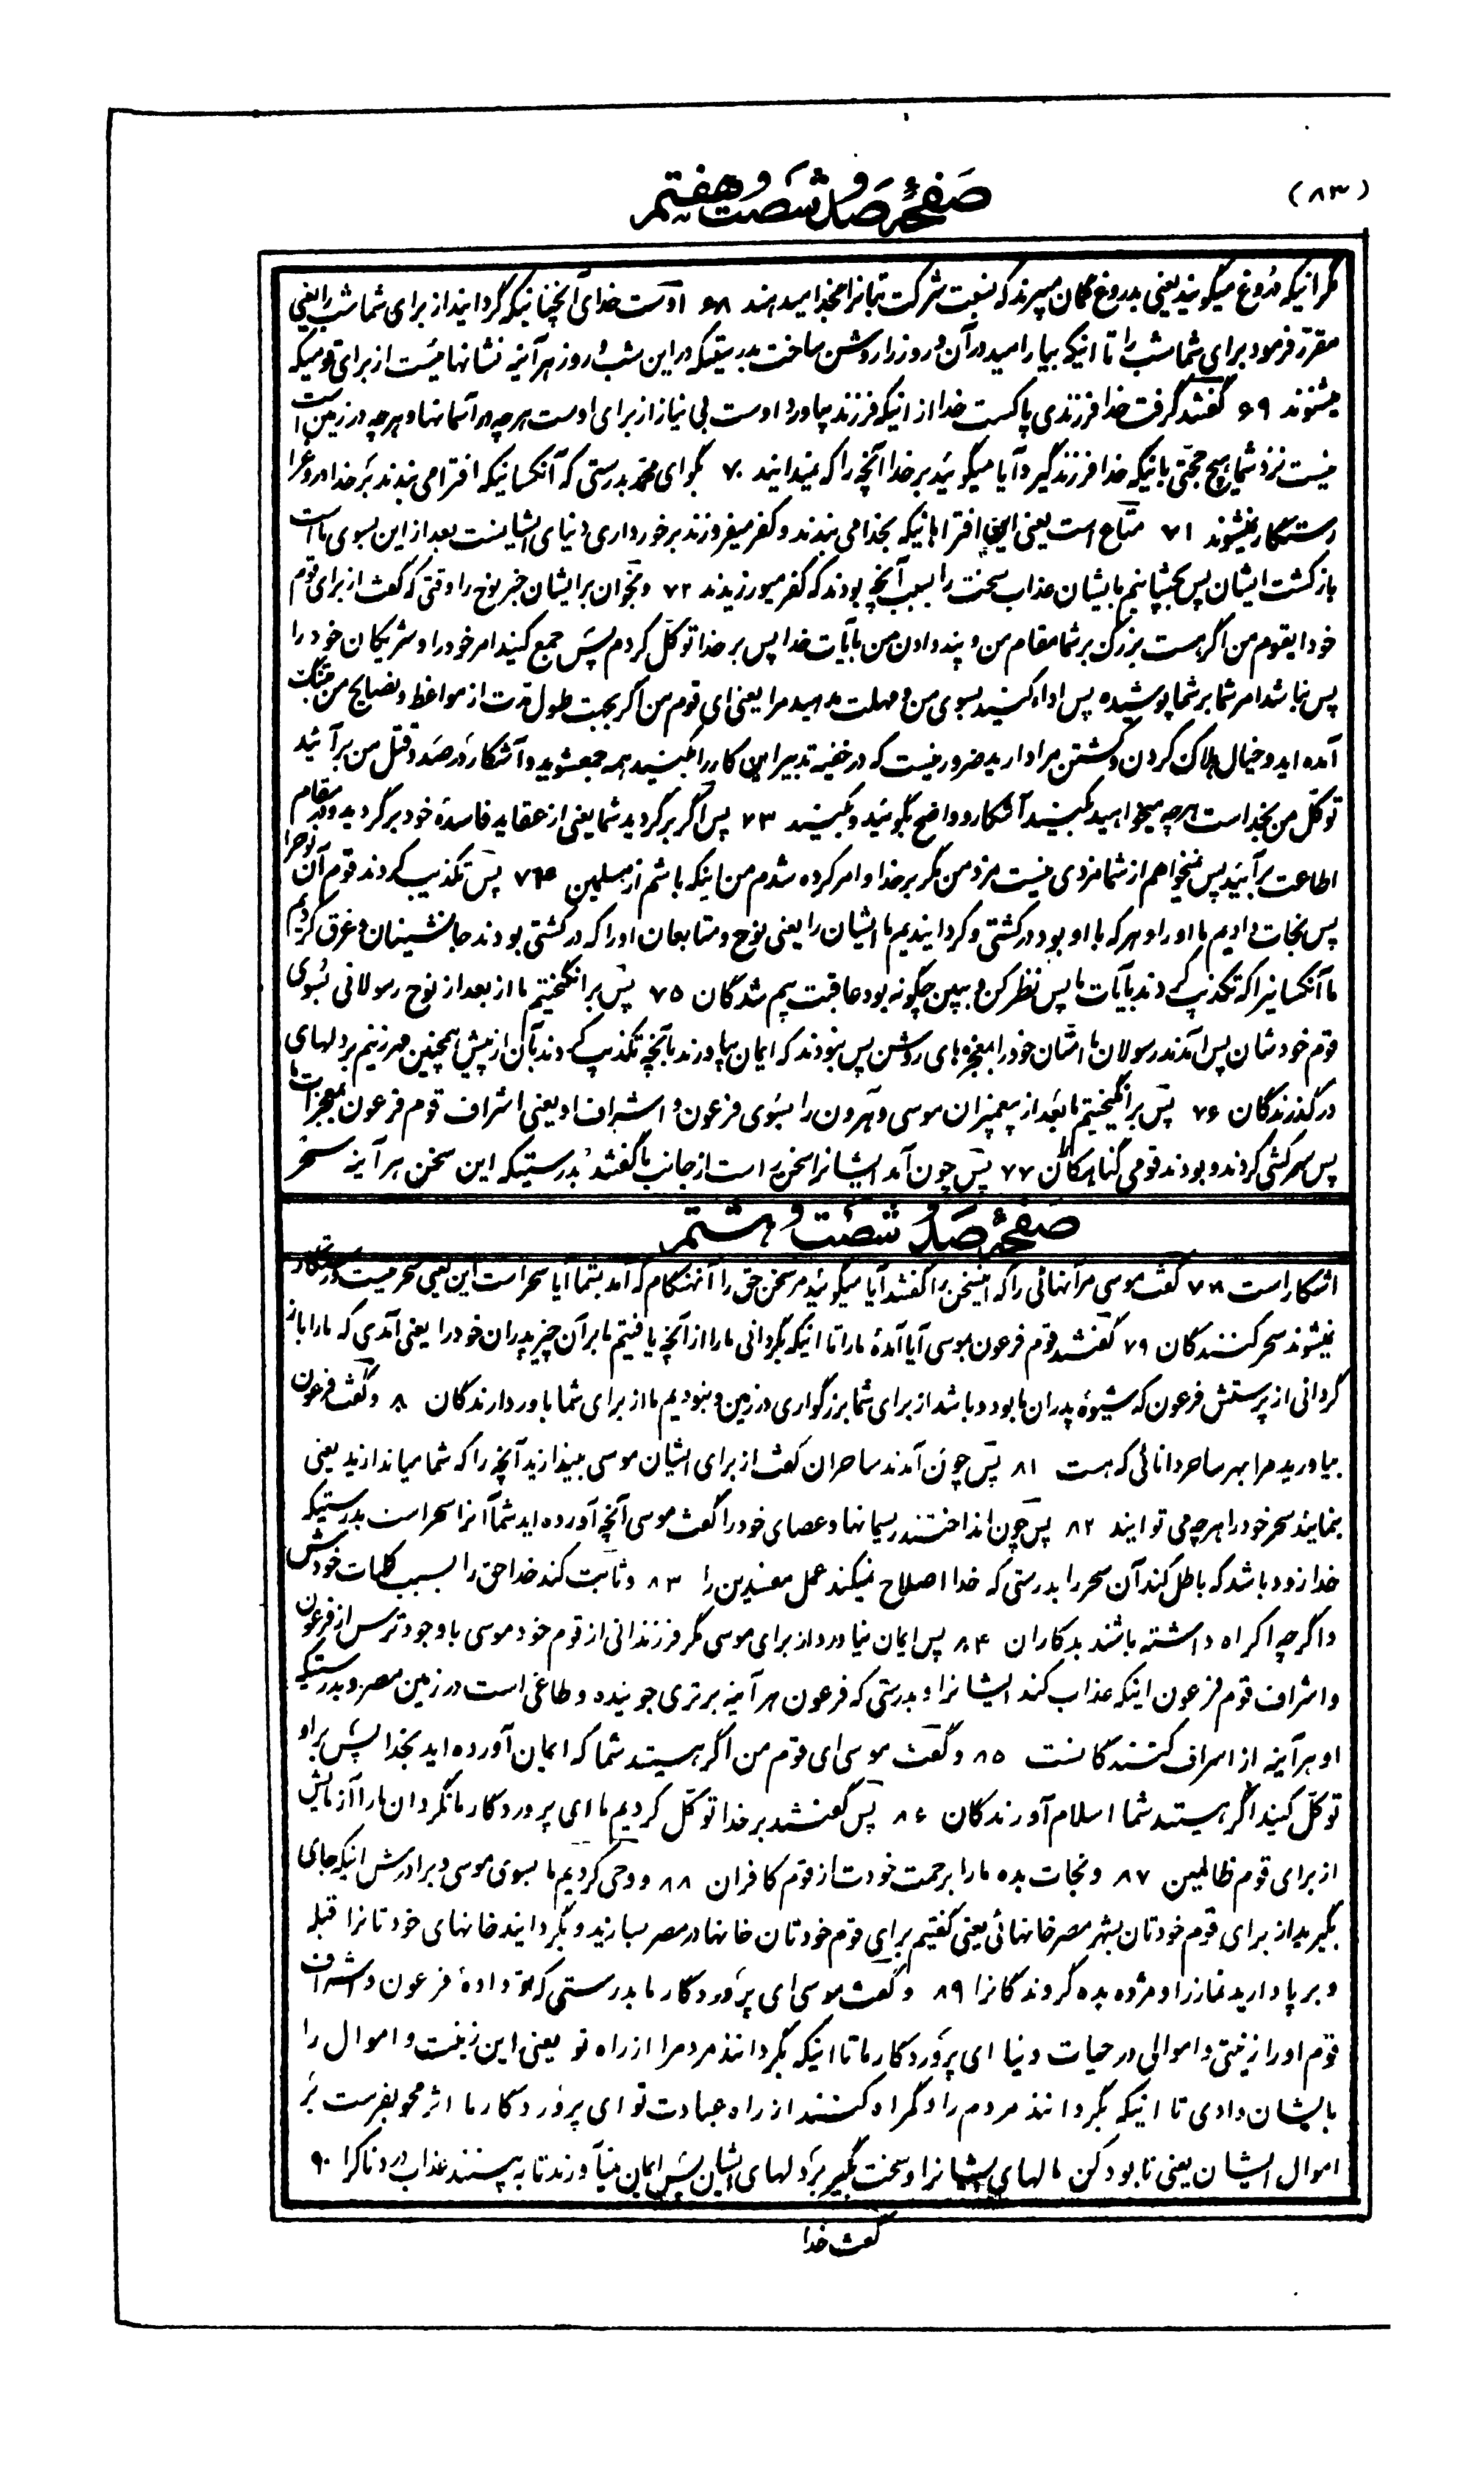 (۸۳)
صفحهٔ صد و شصت و هفتم
مگر انیکه دروغ میگویند یعنی بدروغ گمان میبرند که نسبت شرکت بتانرا بخدا میدهند ۶۸ اوست خدای آنچنانیکه گردانید از برای شما شب را یعنی
مقرر فرمود برای شما شب را تا انیکه بیارامید در آن و روز را روشن ساخت بدرستیکه در این شب و روز هر آینه نشانهائیست از برای قومیکه
میشنوند ۶۹ گفتند گرفت خدا فرزندی پاکست خدا از انیکه فرزند بیاورد اوست بی نیاز از برای اوست هر چه در آسمانها و هر چه در زمین است
نیست نزد شما هیچ حجتی بانیکه خدا فرزند گیرد آیا میگوئید بر خدا آنچه را که نمیدانید ۷۰ بگو ای محمد بدرستی که آنکسانیکه افترا می بندند بر خدا دروغ را
رستگار نمیشوند ۷۱ متاع است یعنی این افتراهائیکه بخدا می بندند و کفر میفروزند برخورداری دنیای ایشانست بعد از این بسوی ما است
بازگشت ایشان پس بچشانیم بایشان عذاب سخت را بسبب آنچه بودند که کفر میورزیدند ۷۲ و بخوان بر ایشان خبر نوح را وقتی که گفت از برای قوم
خود ایقوم من اگر هست بزرگ بر شما مقام من و پند دادن من بآیات خدا پس بر خدا توکل کردم پس جمع کنید امر خود را و شریکان خود را
پس نباشد امر شما بر شما پوشیده پس اداء کنید بسوی من و مهلت مدهید مرا یعنی ای قوم من اگر بجهت طول مدت از مواعظ و نصایح من بتنگ
آمده اید و خیال هلاک کردن و کشتن مرا دارید ضرور نیست که در خفیه تدبیر این کار را بکنید همه جمعشوید و آشکار در صدد قتل من برآئید
توکل من بخداست هر چه میخواهید بکنید آشکار و واضح بگوئید و بکنید ۷۳ پس اگر برگردید شما یعنی از عقاید فاسدهٔ خود برگردید و بمقام
اطاعت برآئید پس نمیخواهم از شما مزدی نیست مزد من مگر بر خدا و امر کرده شدم من اینکه باشم از مسلمین ۷۴ پس تکذیب کردند قوم آن نوح را
پس نجات دادیم ما او را و هر که با او بود در کشتی و گردانیدیم ما ایشان را یعنی نوح و متابعان او را که در کشتی بودند جانشینان و غرق کردیم
ما آنکسانیرا که تکذیب کردند بآیات ما پس نظر کن و ببین چگونه بود عاقبت بیم شدگان ۷۵ پس برانگیختیم ما از بعد از نوح رسولانی بسوی
قوم خودشان پس آمدند رسولان ما امتان خود را بمعجزه های روشن پس نبودند که ایمان بیاورند بآنچه تکذیب کردند بآن از پیش همچنین مهر زنیم بر دلهای
درگذرندگان ۷۶ پس برانگیختیم ما بعد از پیغمبران موسی و هرون را بسوی فرعون و اشراف او یعنی اشراف قوم فرعون بمعجزات ما
پس سرکشی کردند و بودند قومی گناهکاران ۷۷ پس چون آمد ایشانرا سخن راست از جانب ما گفتند بدرستیکه این سخن هر آینه سحر
صفحهٔ صد و شصت و هشتم
آشکار است ۷۸ گفت موسی مر آنهائی را که اینسخن را گفتند آیا میگوئید مر سخن حق را آنهنگام که آمد بشما آیا سحر است این یعنی سحر نیست و رستگار
نمیشوند سحر کنندگان ۷۹ گفتند قوم فرعون بموسی آیا آمدهٔ ما را تا انیکه بگردانی ما را از آنچه یافتیم ما بر آن چیز پدران خود را یعنی آمدی که ما را باز
گردانی از پرستش فرعون که شیوهٔ پدران ما بود و باشد از برای شما بزرگواری در زمین و نبودیم ما از برای شما باوردارندگان ۸۰ و گفت فرعون
بیاورید مرا بهر ساحر دانائی که هست ۸۱ پس چون آمدند ساحران گفت از برای ایشان موسی بیندازید آنچه را که شما میاندازید یعنی
بنمایند سحر خود را هر چه می توانید ۸۲ پس چون انداختند ریسمانها و عصای خود را گفت موسی آنچه آورده اید شما آنرا سحر است بدرستیکه
خدا زود باشد که باطل کند آن سحر را بدرستی که خدا اصلاح نمیکند عمل مفسدین را ۸۳ و ثابت کند خدا حق را بسبب کلمات خودش
و اگر چه اکراه داشته باشند بدکاران ۸۴ پس ایمان نیاورد از برای موسی مگر فرزندانی از قوم خود موسی با وجود ترس از فرعون
و اشراف قوم فرعون اینکه عذاب کند ایشانرا و بدرستی که فرعون هر آینه برتری جوینده و طاغی است در زمین مصر و بدرستیکه
او هر آینه از اسراف کنندگانست ۸۵ و گفت موسی ای قوم من اگر هستید شما که ایمان آورده اید بخدا پس بر او
توکل کنید اگر هستید شما اسلام آورندگان ۸۶ پس گفتند بر خدا توکل کردیم ما ای پروردگار ما نگردان ما را آزمایش
از برای قوم ظالمین ۸۷ و نجات بده ما را برحمت خودت از قوم کافران ۸۸ و وحی کردیم ما بسوی موسی و برادرش انیکه جای
بگیرید از برای قوم خودتان بشهر مصر خانهائی یعنی گفتیم برای قوم خودتان خانها در مصر بسازید و بگردانید خانهای خودتانرا قبله
و بر پا دارید نماز را و مژده بده گروندگانرا ۸۹ و گفت موسی ای پروردگار ما بدرستی که تو دادهٔ فرعون و اشراف
قوم او را زینتی و اموالی در حیات دنیا ای پروردگار ما تا انیکه بگردانند مردمرا از راه تو یعنی این زینت و اموال را
بایشان دادی تا انیکه بگردانند مردم را و گمراه کنند از راه عبادت تو ای پروردگار ما اثر محو بفرست بر
اموال ایشان یعنی نابود کن مالهای ایشانرا و سخت بگیر بر دلهای ایشان پس ایمان نیاورند تا به بینند عذاب دردناکرا ۹۰
گفت خدا